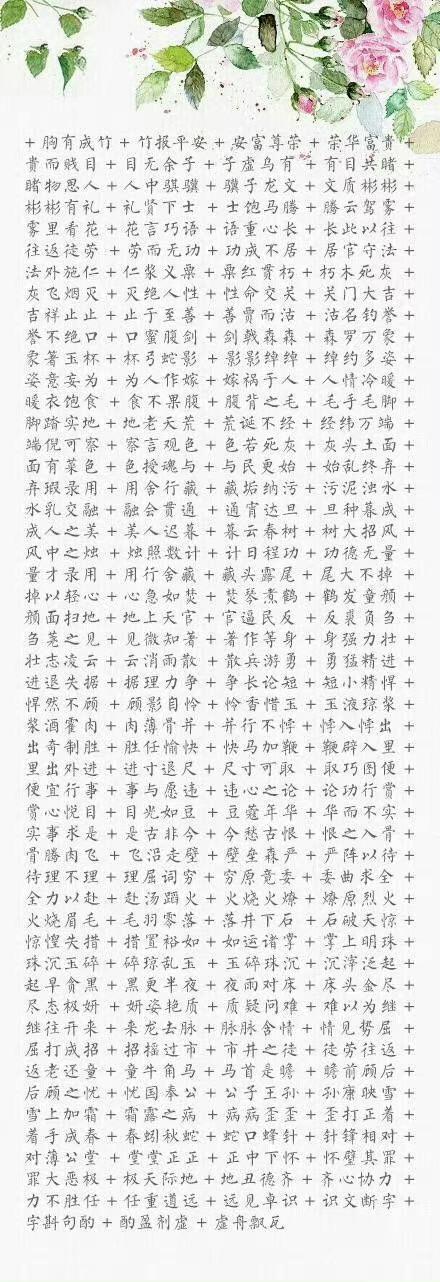 + 胸有成竹 + 竹报平安 + 安富尊荣 + 荣华富贵 +
贵而贱目 + 目无余子 + 子虚乌有 + 有目共睹 +
睹物思人 + 人中骐骥 + 骥子龙文 + 文质彬彬 +
彬彬有礼 + 礼贤下士 + 士饱马腾 + 腾云驾雾 +
雾里看花 + 花言巧语 + 语重心长 + 长此以往 +
往返徒劳 + 劳而无功 + 功成不居 + 居官守法 +
法外施仁 + 仁浆义粟 + 粟红贯朽 + 朽木死灰 +
灰飞烟灭 + 灭绝人性 + 性命交关 + 关门大吉 +
吉祥止止 + 止于至善 + 善贾而沽 + 沽名钓誉 +
誉不绝口 + 口蜜腹剑 + 剑戟森森 + 森罗万象 +
象箸玉杯 + 杯弓蛇影 + 影影绰绰 + 绰约多姿 +
姿意妄为 + 为人作嫁 + 嫁祸于人 + 人情冷暖 +
暖衣饱食 + 食不果腹 + 腹背之毛 + 毛手毛脚 +
脚踏实地 + 地老天荒 + 荒诞不经 + 经纬万端 +
端倪可察 + 察言观色 + 色若死灰 + 灰头土面 +
面有菜色 + 色授魂与 + 与民更始 + 始乱终弃 +
弃瑕录用 + 用舍行藏 + 藏垢纳污 + 污泥浊水 +
水乳交融 + 融会贯通 + 通宵达旦 + 旦种暮成 +
成人之美 + 美人迟暮 + 暮云春树 + 树大招风 +
风中之烛 + 烛照数计 + 计日程功 + 功德无量 +
量才录用 + 用行舍藏 + 藏头露尾 + 尾大不掉 +
掉以轻心 + 心急如焚 + 焚琴煮鹤 + 鹤发童颜 +
颜面扫地 + 地上天官 + 官逼民反 + 反裘负刍 +
刍荛之见 + 见微知著 + 著作等身 + 身强力壮 +
壮志凌云 + 云消雨散 + 散兵游勇 + 勇猛精进 +
进退失据 + 据理力争 + 争长论短 + 短小精悍 +
悍然不顾 + 顾影自怜 + 怜香惜玉 + 玉液琼浆 +
浆酒霍肉 + 肉薄骨并 + 并行不悖 + 悖入悖出 +
出奇制胜 + 胜任愉快 + 快马加鞭 + 鞭辟入里 +
里出外进 + 进寸退尺 + 尺寸可取 + 取巧图便 +
便宜行事 + 事与愿违 + 违心之论 + 论功行赏 +
赏心悦目 + 目光如豆 + 豆蔻年华 + 华而不实 +
实事求是 + 是古非今 + 今愁古恨 + 恨之入骨 +
骨腾肉飞 + 飞沿走壁 + 壁垒森严 + 严阵以待 +
待理不理 + 理屈词穷 + 穷原竟委 + 委曲求全 +
全力以赴 + 赴汤蹈火 + 火烧火燎 + 燎原烈火 +
火烧眉毛 + 毛羽零落 + 落井下石 + 石破天惊 +
惊惶失措 + 措置裕如 + 如运诸掌 + 掌上明珠 +
珠沉玉碎 + 碎琼乱玉 + 玉碎珠沉 + 沉滓泛起 +
起早贪黑 + 黑更半夜 + 夜雨对床 + 床头金尽 +
尽态极妍 + 妍姿艳质 + 质疑问难 + 难以为继 +
继往开来 + 来龙去脉 + 脉脉含情 + 情见势屈 +
屈打成招 + 招摇过市 + 市井之徒 + 徒劳往返 +
返老还童 + 童牛角马 + 马首是瞻 + 瞻前顾后 +
后顾之忧 + 忧国奉公 + 公子王孙 + 孙康映雪 +
雪上加霜 + 霜露之病 + 病病歪歪 + 歪打正着 +
着手成春 + 春蚓秋蛇 + 蛇口蜂针 + 针锋相对 +
对薄公堂 + 堂堂正正 + 正中下怀 + 怀璧其罪 +
罪大恶极 + 极天际地 + 地丑德齐 + 齐心协力 +
力不胜任 + 任重道远 + 远见卓识 + 识文断字 +
字斟句酌 + 酌盈剂虚 + 虚舟飘瓦